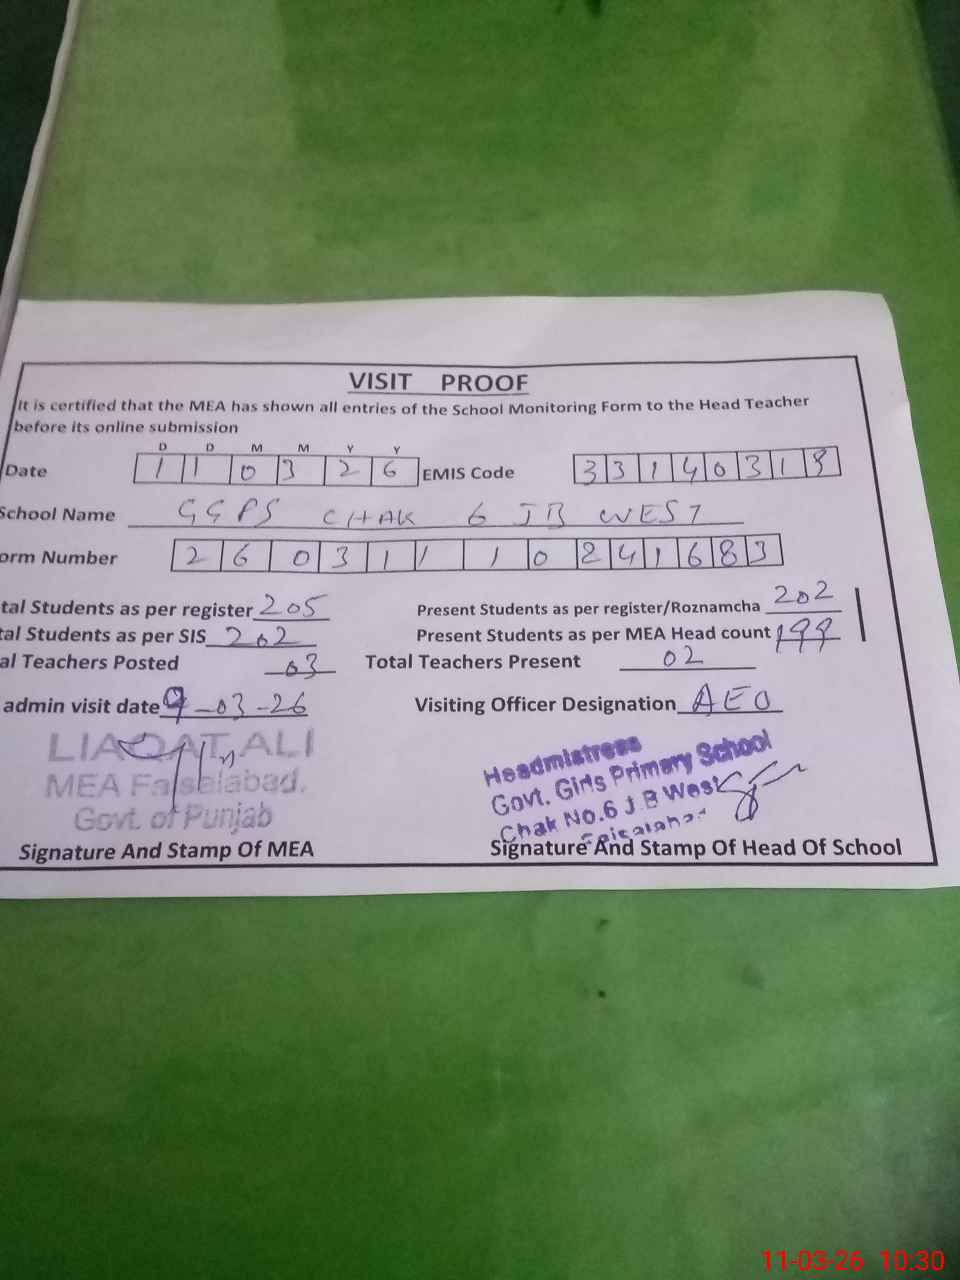 VISIT PROOF
It is certified that the MEA has shown all entries of the School Monitoring Form to the Head Teacher
before its online submission
D D M M Y Y
Date 1 1 0 3 2 6 EMIS Code 3 3 1 4 0 3 1 9
School Name GGPS CHAK 6 JB WEST
orm Number 2 6 0 3 1 1 1 0 2 4 1 6 8 3
tal Students as per register 205 Present Students as per register/Roznamcha 202
tal Students as per SIS 202 Present Students as per MEA Head count 199
al Teachers Posted 03 Total Teachers Present 02
admin visit date 9-03-26 Visiting Officer Designation AEO
LIAQAT ALI
MEA Faisalabad.
Govt. of Punjab
Signature And Stamp Of MEA
Headmistress
Govt. Girls Primary School
Chak No.6 J.B West
Faisalabad
Signature And Stamp Of Head Of School
11-03-26 10:30